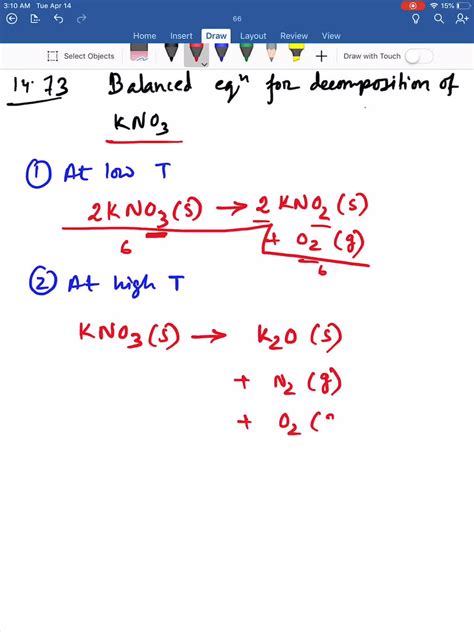 3:10 AM Tue Apr 14
15%
66
Home Insert Draw Layout Review View
Select Objects
Draw with Touch
14.73 Balanced eqⁿ for decomposition of
KNO₃
① At low T
2KNO₃(s) → 2KNO₂(s)
+ O₂(g)
6
6
② At high T
KNO₃(s) → K₂O(s)
+ N₂(g)
+ O₂(